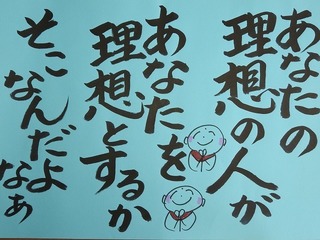 あなたの
理想の人が
あなたを
理想とするか
そこ
なんだよ
なぁ